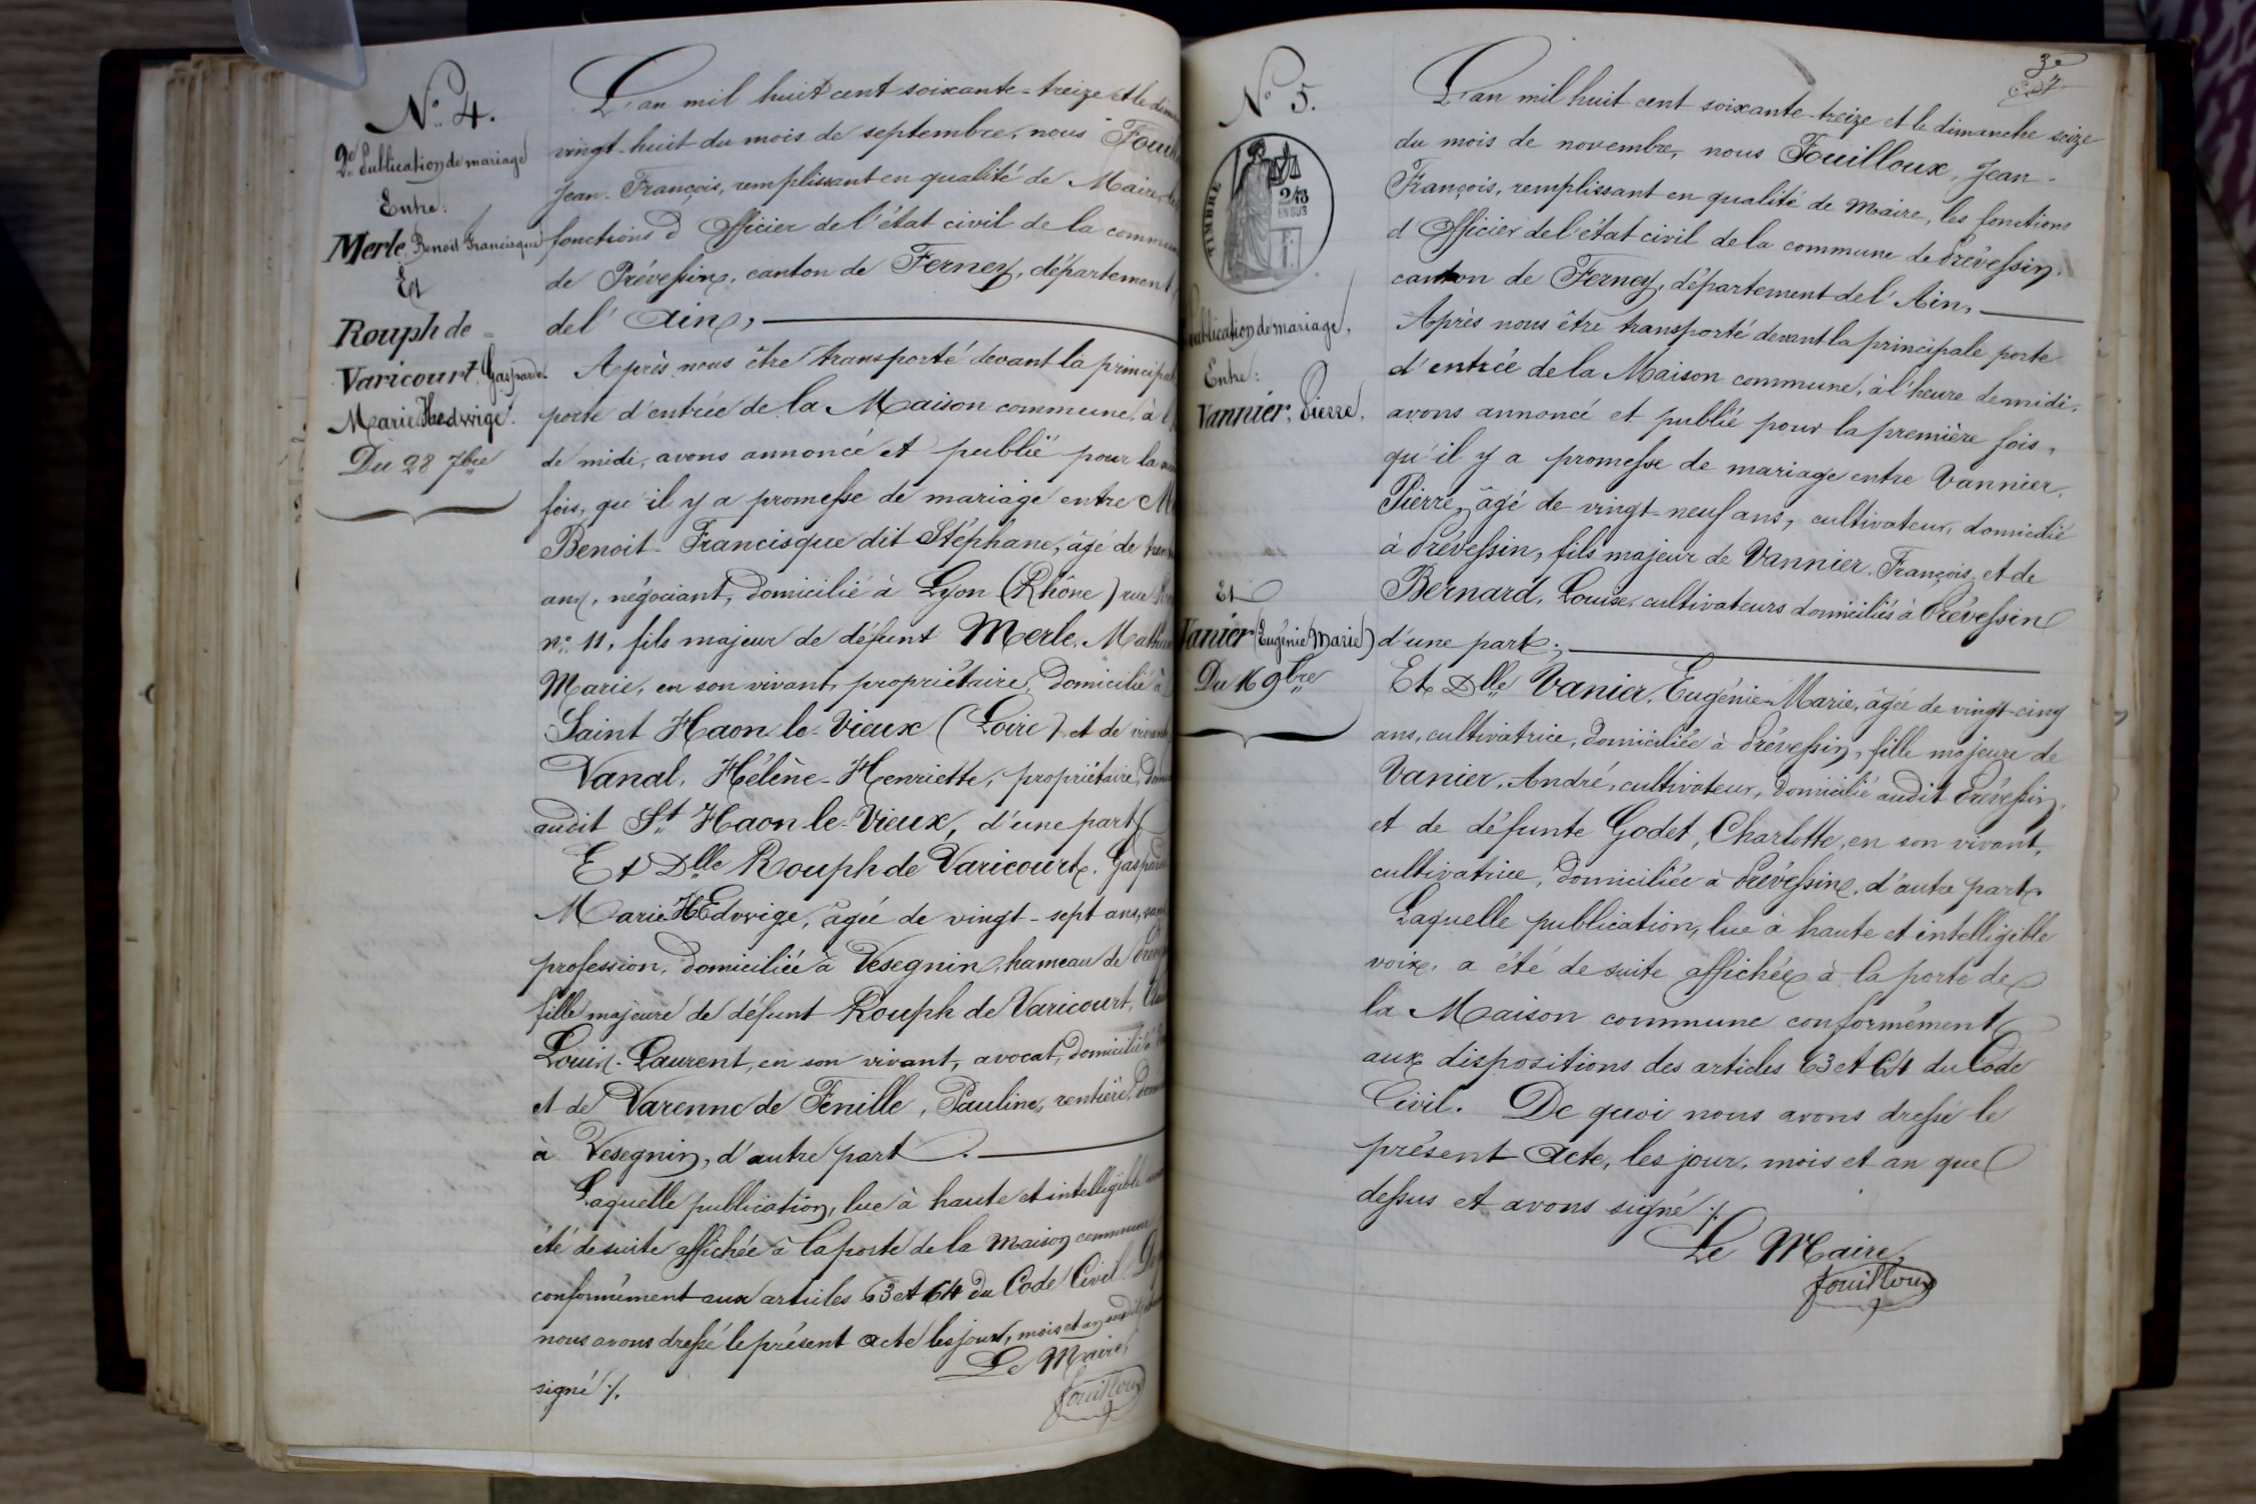 N° 4.
2e Publication de mariage
Entre:
Merle, Benoit Francisque
Et
Rouph de
Varicourt, Gasparde
Marie Hedwige.
Du 28 7bre
L'an mil huit cent soixante-treize et le
vingt-huit du mois de septembre, nous
Jean-François, remplissant en qualité de Maire,
fonctions d'Officier de l'état civil de la commune
de Prévessin, canton de Ferney, département
de l'Ain,
Après nous être transporté devant la principale
porte d'entrée de la Maison commune, à
de midi, avons annoncé et publié pour la
fois, qu'il y a promesse de mariage entre
Benoit-Francisque dit Stéphane, âgé de
ans, négociant, domicilié à Lyon (Rhône) rue
n° 11, fils majeur de défunt Merle,
Marie, en son vivant, propriétaire, domicilié à
Saint Haon-le-Vieux (Loire) et de vivante
Vanal, Hélène-Henriette, propriétaire,
audit St Haon le-Vieux, d'une part
Et Dlle Rouph de Varicourt, Gasparde
Marie HEdwige, âgée de vingt-sept ans, sans
profession, domiciliée à Vesegnin, hameau de
fille majeure de défunt Rouph de Varicourt,
Louis-Laurent, en son vivant, avocat, domicilié
et de Varenne de Fenille, Pauline, rentière,
à Vesegnin, d'autre part.
Laquelle publication, lue à haute et intelligible
été de suite affichée à la porte de la Maison commune
conformément aux articles 63 et 64 du Code Civil.
nous avons dressé le présent acte les jour, mois et an
signé ./.
Le Maire,
Fouilloux
3e
N° 5.
TIMBRE
2/10
EN SUS
Publication de mariage,
Entre:
Vannier, Pierre,
Et
Vanier (Eugénie Marie)
Du 16 9bre
L'an mil huit cent soixante-treize et le dimanche seize
du mois de novembre, nous Fouilloux, Jean-
François, remplissant en qualité de maire, les fonctions
d'Officier de l'état civil de la commune de Prévessin,
canton de Ferney, département de l'Ain,
Après nous être transporté devant la principale porte
d'entrée de la Maison commune, à l'heure de midi,
avons annoncé et publié pour la première fois,
qu'il y a promesse de mariage entre Vannier,
Pierre, âgé de vingt-neuf ans, cultivateur, domicilié
à Prévessin, fils majeur de Vannier, François, et de
Bernard, Louise, cultivateurs domiciliés à Prévessin
d'une part;
Et Dlle Vanier, Eugénie-Marie, âgée de vingt-cinq
ans, cultivatrice, domiciliée à Prévessin, fille majeure de
Vanier, André, cultivateur, domicilié audit Prévessin,
et de défunte Godet, Charlotte, en son vivant,
cultivatrice, domiciliée à Prévessin, d'autre part.
Laquelle publication, lue à haute et intelligible
voix, a été de suite affichée à la porte de
la Maison commune conformément
aux dispositions des articles 63 et 64 du Code
Civil. De quoi nous avons dressé le
présent Acte, les jour, mois et an que
dessus et avons signé ./.
Le Maire,
Fouilloux